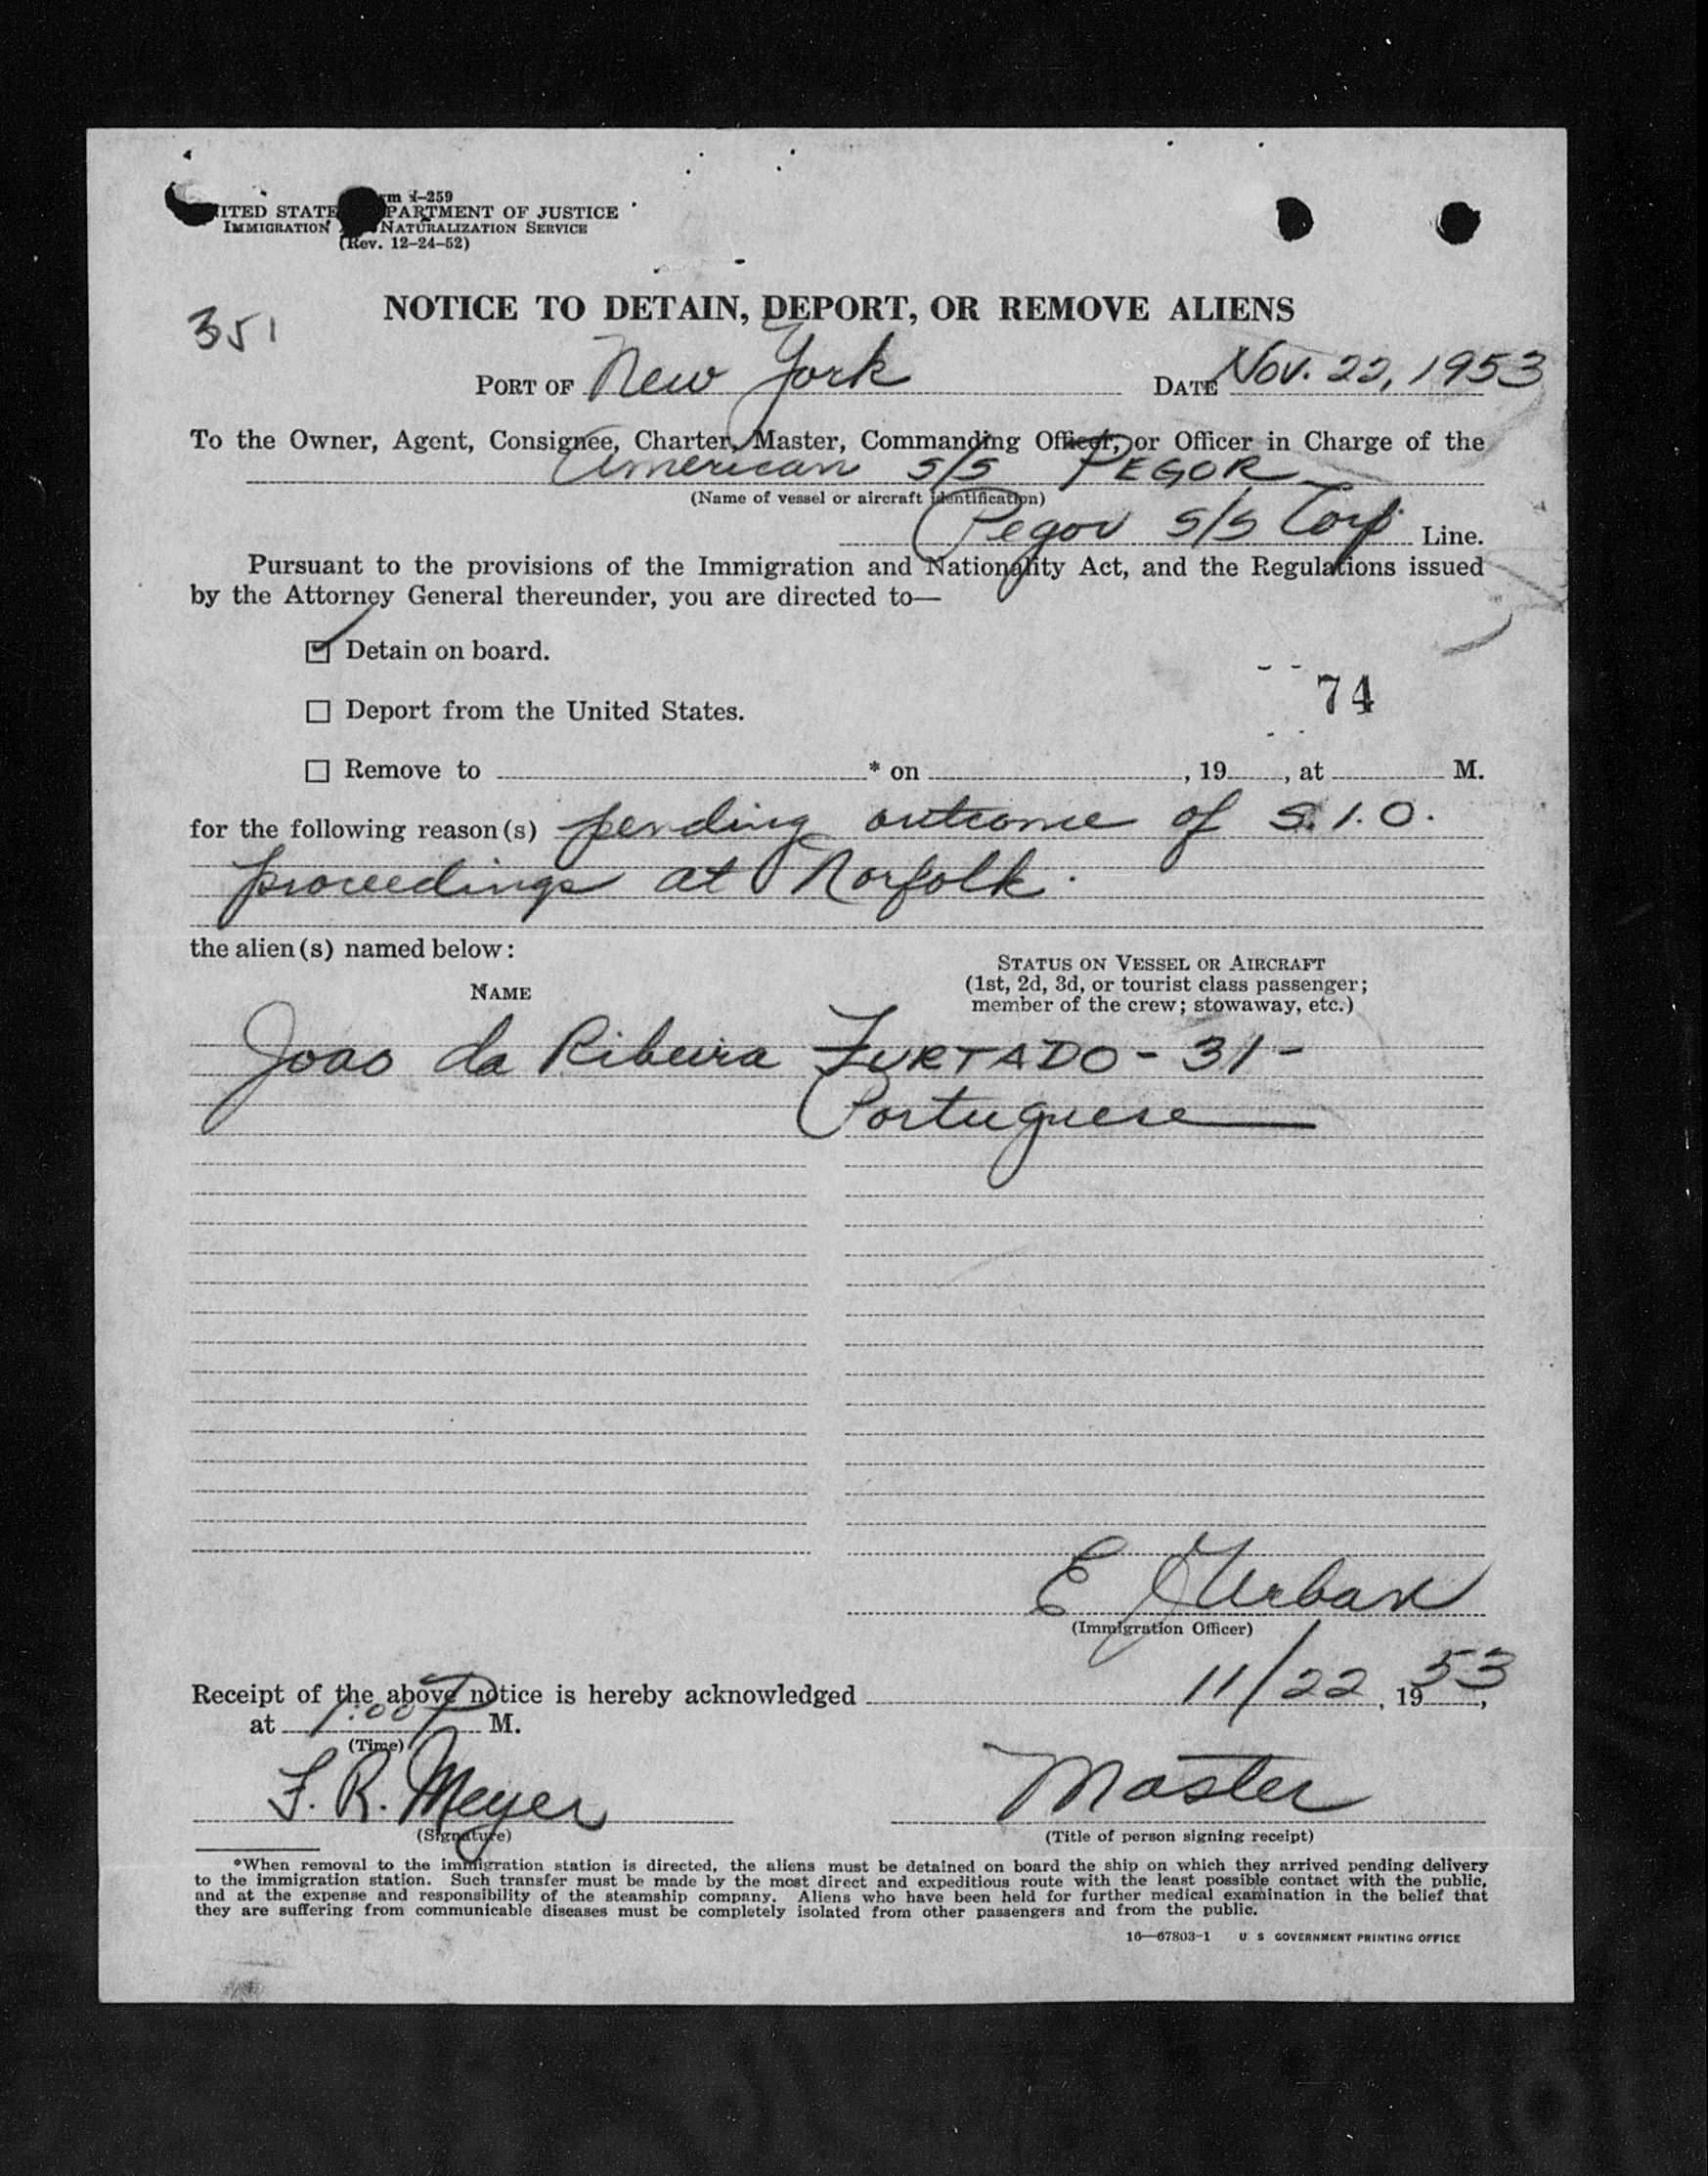 Form I-259
UNITED STATES DEPARTMENT OF JUSTICE
IMMIGRATION AND NATURALIZATION SERVICE
(Rev. 12-24-52)
NOTICE TO DETAIN, DEPORT, OR REMOVE ALIENS
351
PORT OF New York DATE Nov. 22, 1953
To the Owner, Agent, Consignee, Charter, Master, Commanding Officer, or Officer in Charge of the
American S/S PEGOR
(Name of vessel or aircraft identification)
Pegor S/S Corp. Line.
Pursuant to the provisions of the Immigration and Nationality Act, and the Regulations issued
by the Attorney General thereunder, you are directed to—
☑ Detain on board.
74
☐ Deport from the United States.
☐ Remove to * on , 19 , at M.
for the following reason(s) pending outcome of S.I.O.
proceedings at Norfolk.
the alien(s) named below:
STATUS ON VESSEL OR AIRCRAFT
NAME (1st, 2d, 3d, or tourist class passenger;
member of the crew; stowaway, etc.)
Joao da Ribeira FURTADO - 31 -
Portuguese
E J Urban
(Immigration Officer)
Receipt of the above notice is hereby acknowledged 11/22, 1953,
at 1:00 P M.
(Time)
F. R. Meyer Master
(Signature) (Title of person signing receipt)
*When removal to the immigration station is directed, the aliens must be detained on board the ship on which they arrived pending delivery
to the immigration station. Such transfer must be made by the most direct and expeditious route with the least possible contact with the public,
and at the expense and responsibility of the steamship company. Aliens who have been held for further medical examination in the belief that
they are suffering from communicable diseases must be completely isolated from other passengers and from the public.
16—67803-1 U S GOVERNMENT PRINTING OFFICE